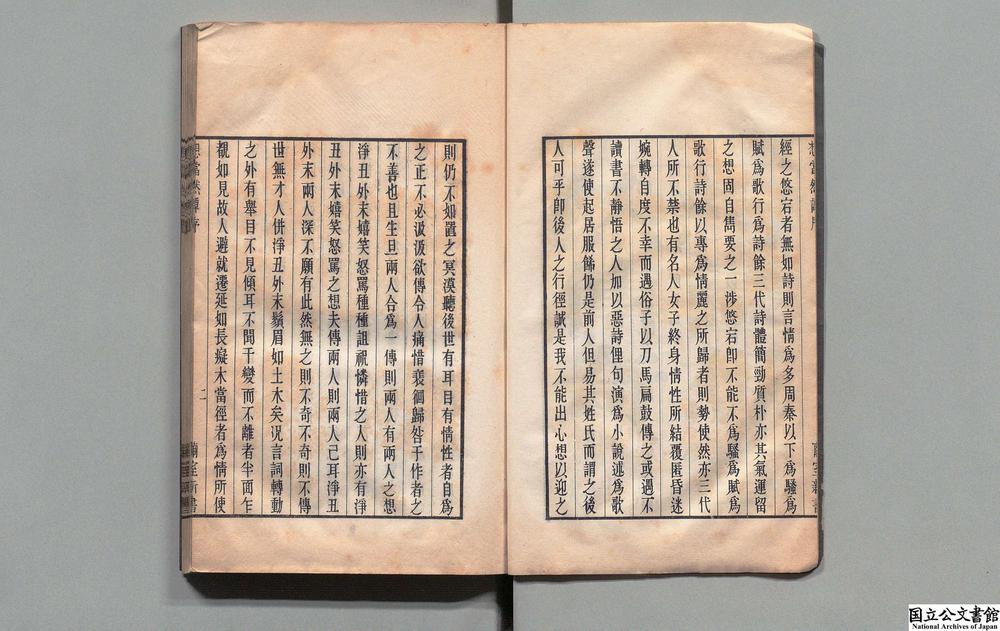 經之悠宕者無如詩則言情爲多周秦以下爲騷爲
賦爲歌行爲詩餘三代詩體簡勁質朴亦其氣運留
之想固自雋要之一涉悠宕卽不能不爲騷爲賦爲
歌行詩餘以專爲情麗之所歸者則勢使然亦三代
人所不禁也有名人女子終身情性所結覆匿昏迷
婉轉自度不幸而遇俗子以刀馬扁鼓傳之或遇不
讀書不靜悟之人加以惡詩俚句演爲小說述爲歌
聲遂使起居服餙仍是前人但易其姓氏而謂之後
人可乎卽後人之行徑誠是我不能出心想以迎之
則仍不如置之冥漠聽後世有耳目有情性者自爲
之正不必汲汲欲傳令人痛惜裵徊歸咎于作者之
不善也且生旦兩人合爲一傳則兩人有兩人之想
淨丑外末嬉笑怒罵種種詛祝憐惜之人則亦有淨
丑外末嬉笑怒罵之想夫傳兩人則兩人已耳淨丑
外末兩人深不願有此然無之則不奇不奇則不傳
世無才人併淨丑外末鬚眉如土木矣况言詞轉動
之外有舉目不見傾耳不聞千變而不離者半面乍
覩如見故人避就遷延如長癡木當徑者爲情所使
想當然譚序
二
國立公文書館
National Archives of Japan